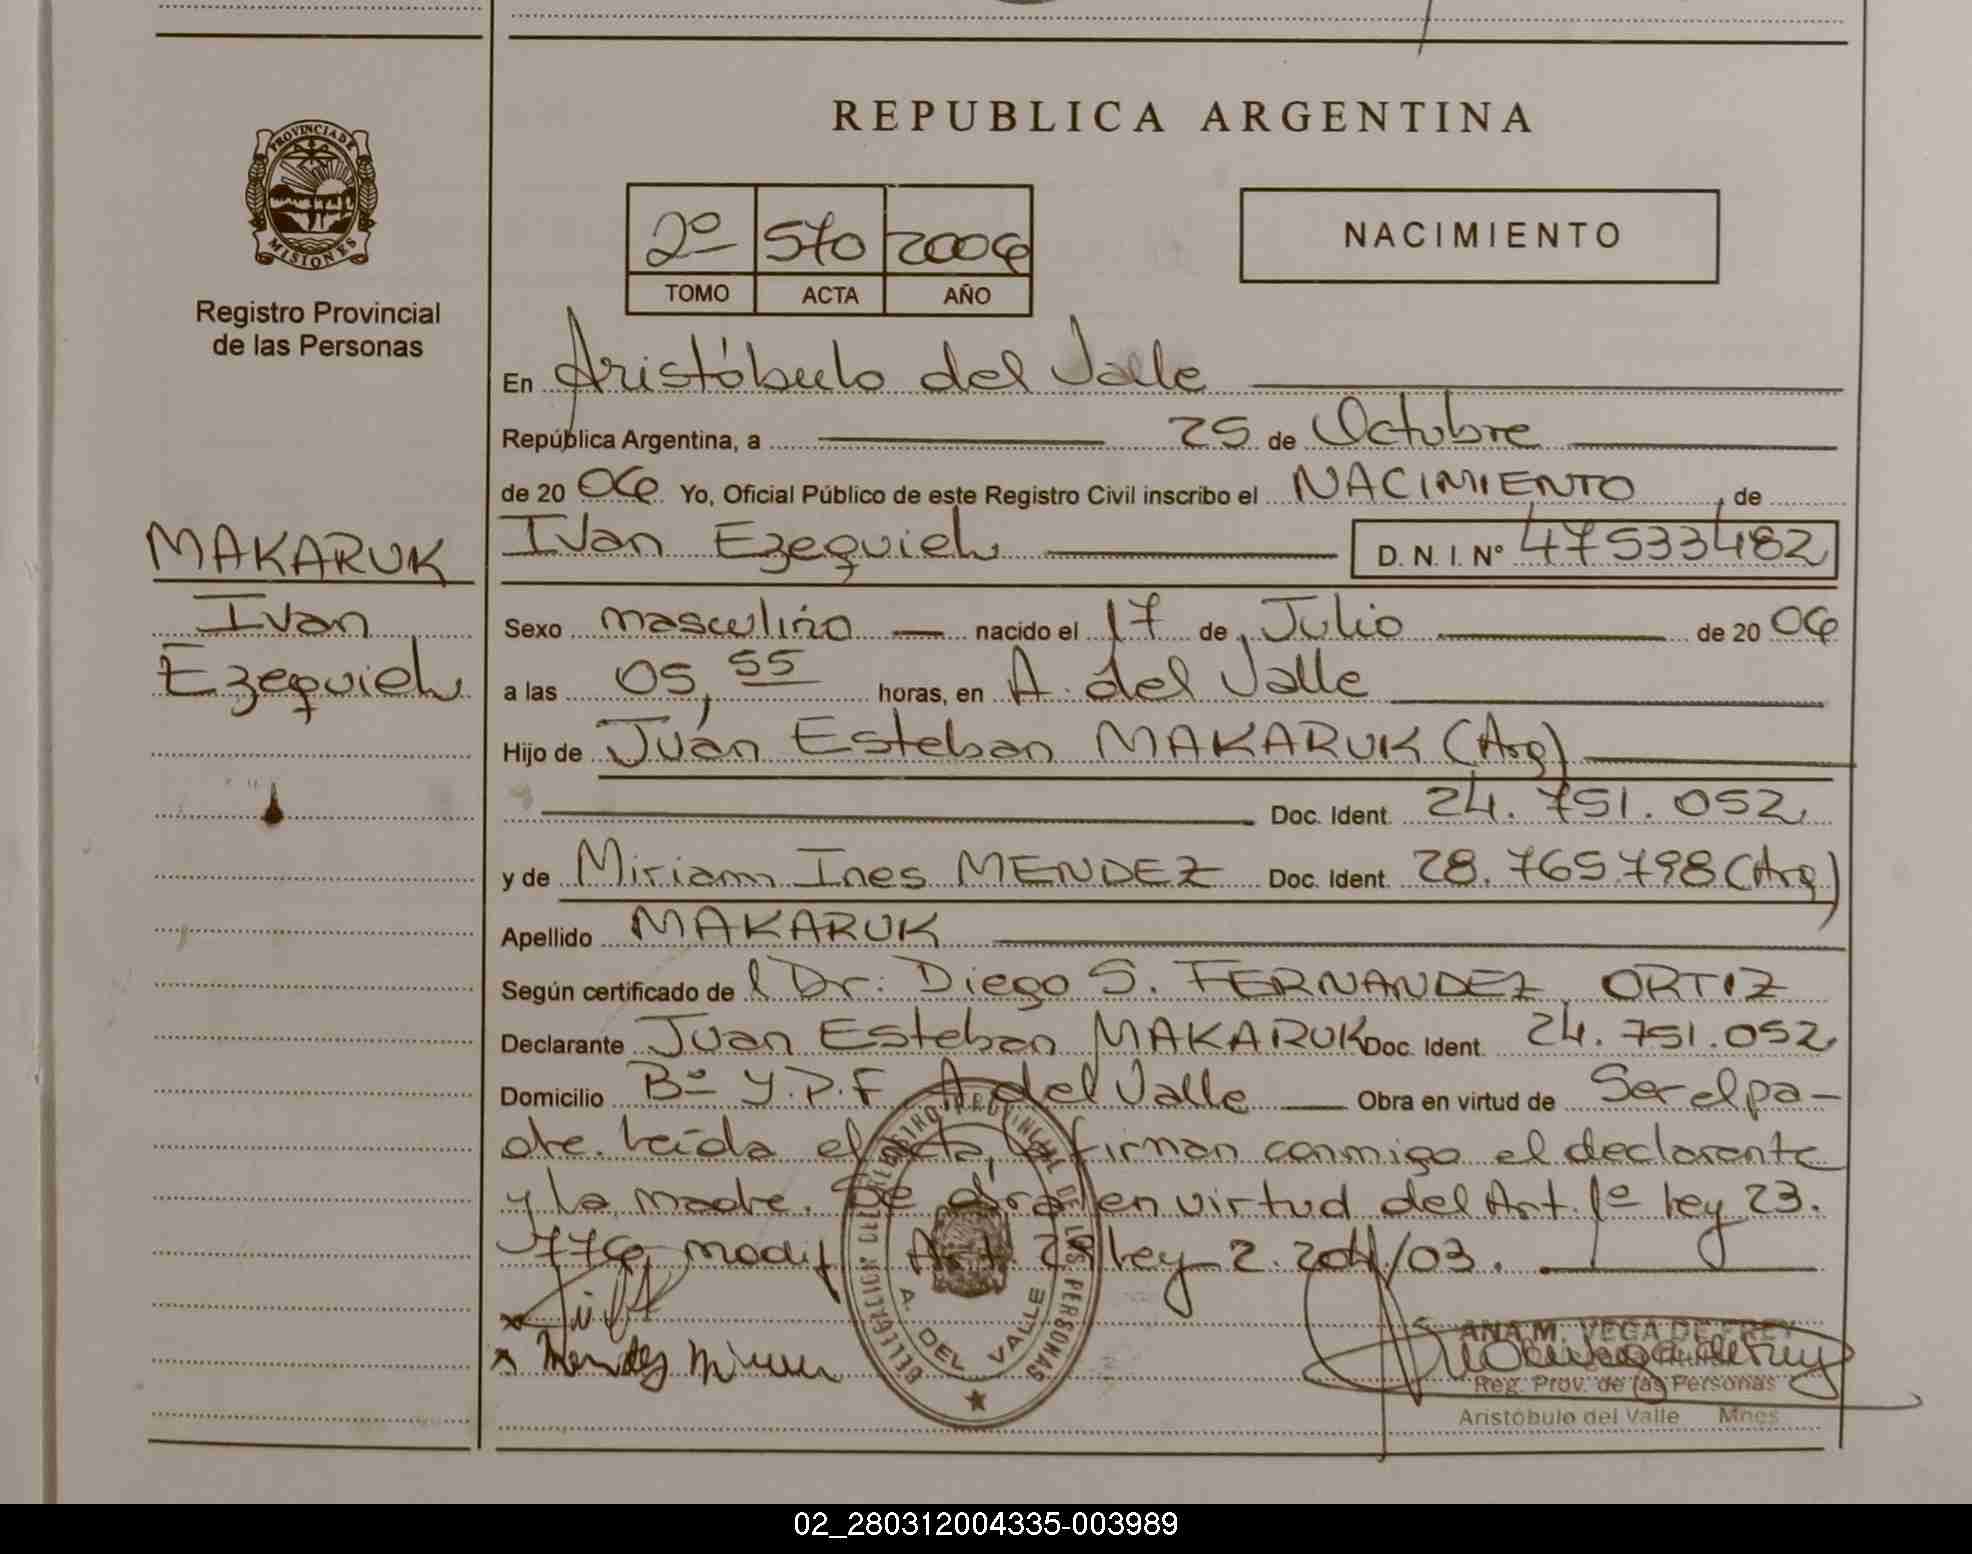 REPUBLICA ARGENTINA
PROVINCIA DE
MISIONES
Registro Provincial
de las Personas
2º 570 2006
TOMO ACTA AÑO
NACIMIENTO
En Aristóbulo del Valle
República Argentina, a 25 de Octubre
de 20 06 Yo, Oficial Público de este Registro Civil inscribo el NACIMIENTO, de
MAKARUK
Ivan
Ezequiel
Ivan Ezequiel D. N. I. Nº 47533482
Sexo masculino nacido el 17 de Julio de 20 06
a las 05,55 horas, en A. del Valle
Hijo de Juan Esteban MAKARUK (Arg)
Doc. Ident. 24.751.052
y de Miriam Ines MENDEZ Doc. Ident. 28.765.798 (Arg)
Apellido MAKARUK
Según certificado de l Dr: Diego S. FERNANDEZ ORTIZ
Declarante Juan Esteban MAKARUK Doc. Ident. 24.751.052
Domicilio Bº Y.P.F A. del Valle Obra en virtud de Ser el pa-
dre. Leída el acta, la firman conmigo el declarante
y la madre. Se obra en virtud del Art. 1º ley 23.
776 modif Art. 29 ley 2.204/03.
Mendez Miriam
DELEGACION DEL REGISTRO PROVINCIAL DE LAS PERSONAS
A. DEL VALLE
ANA M. VEGA DE FREY
Reg. Prov. de las Personas
Aristóbulo del Valle Mnes
02_280312004335-003989